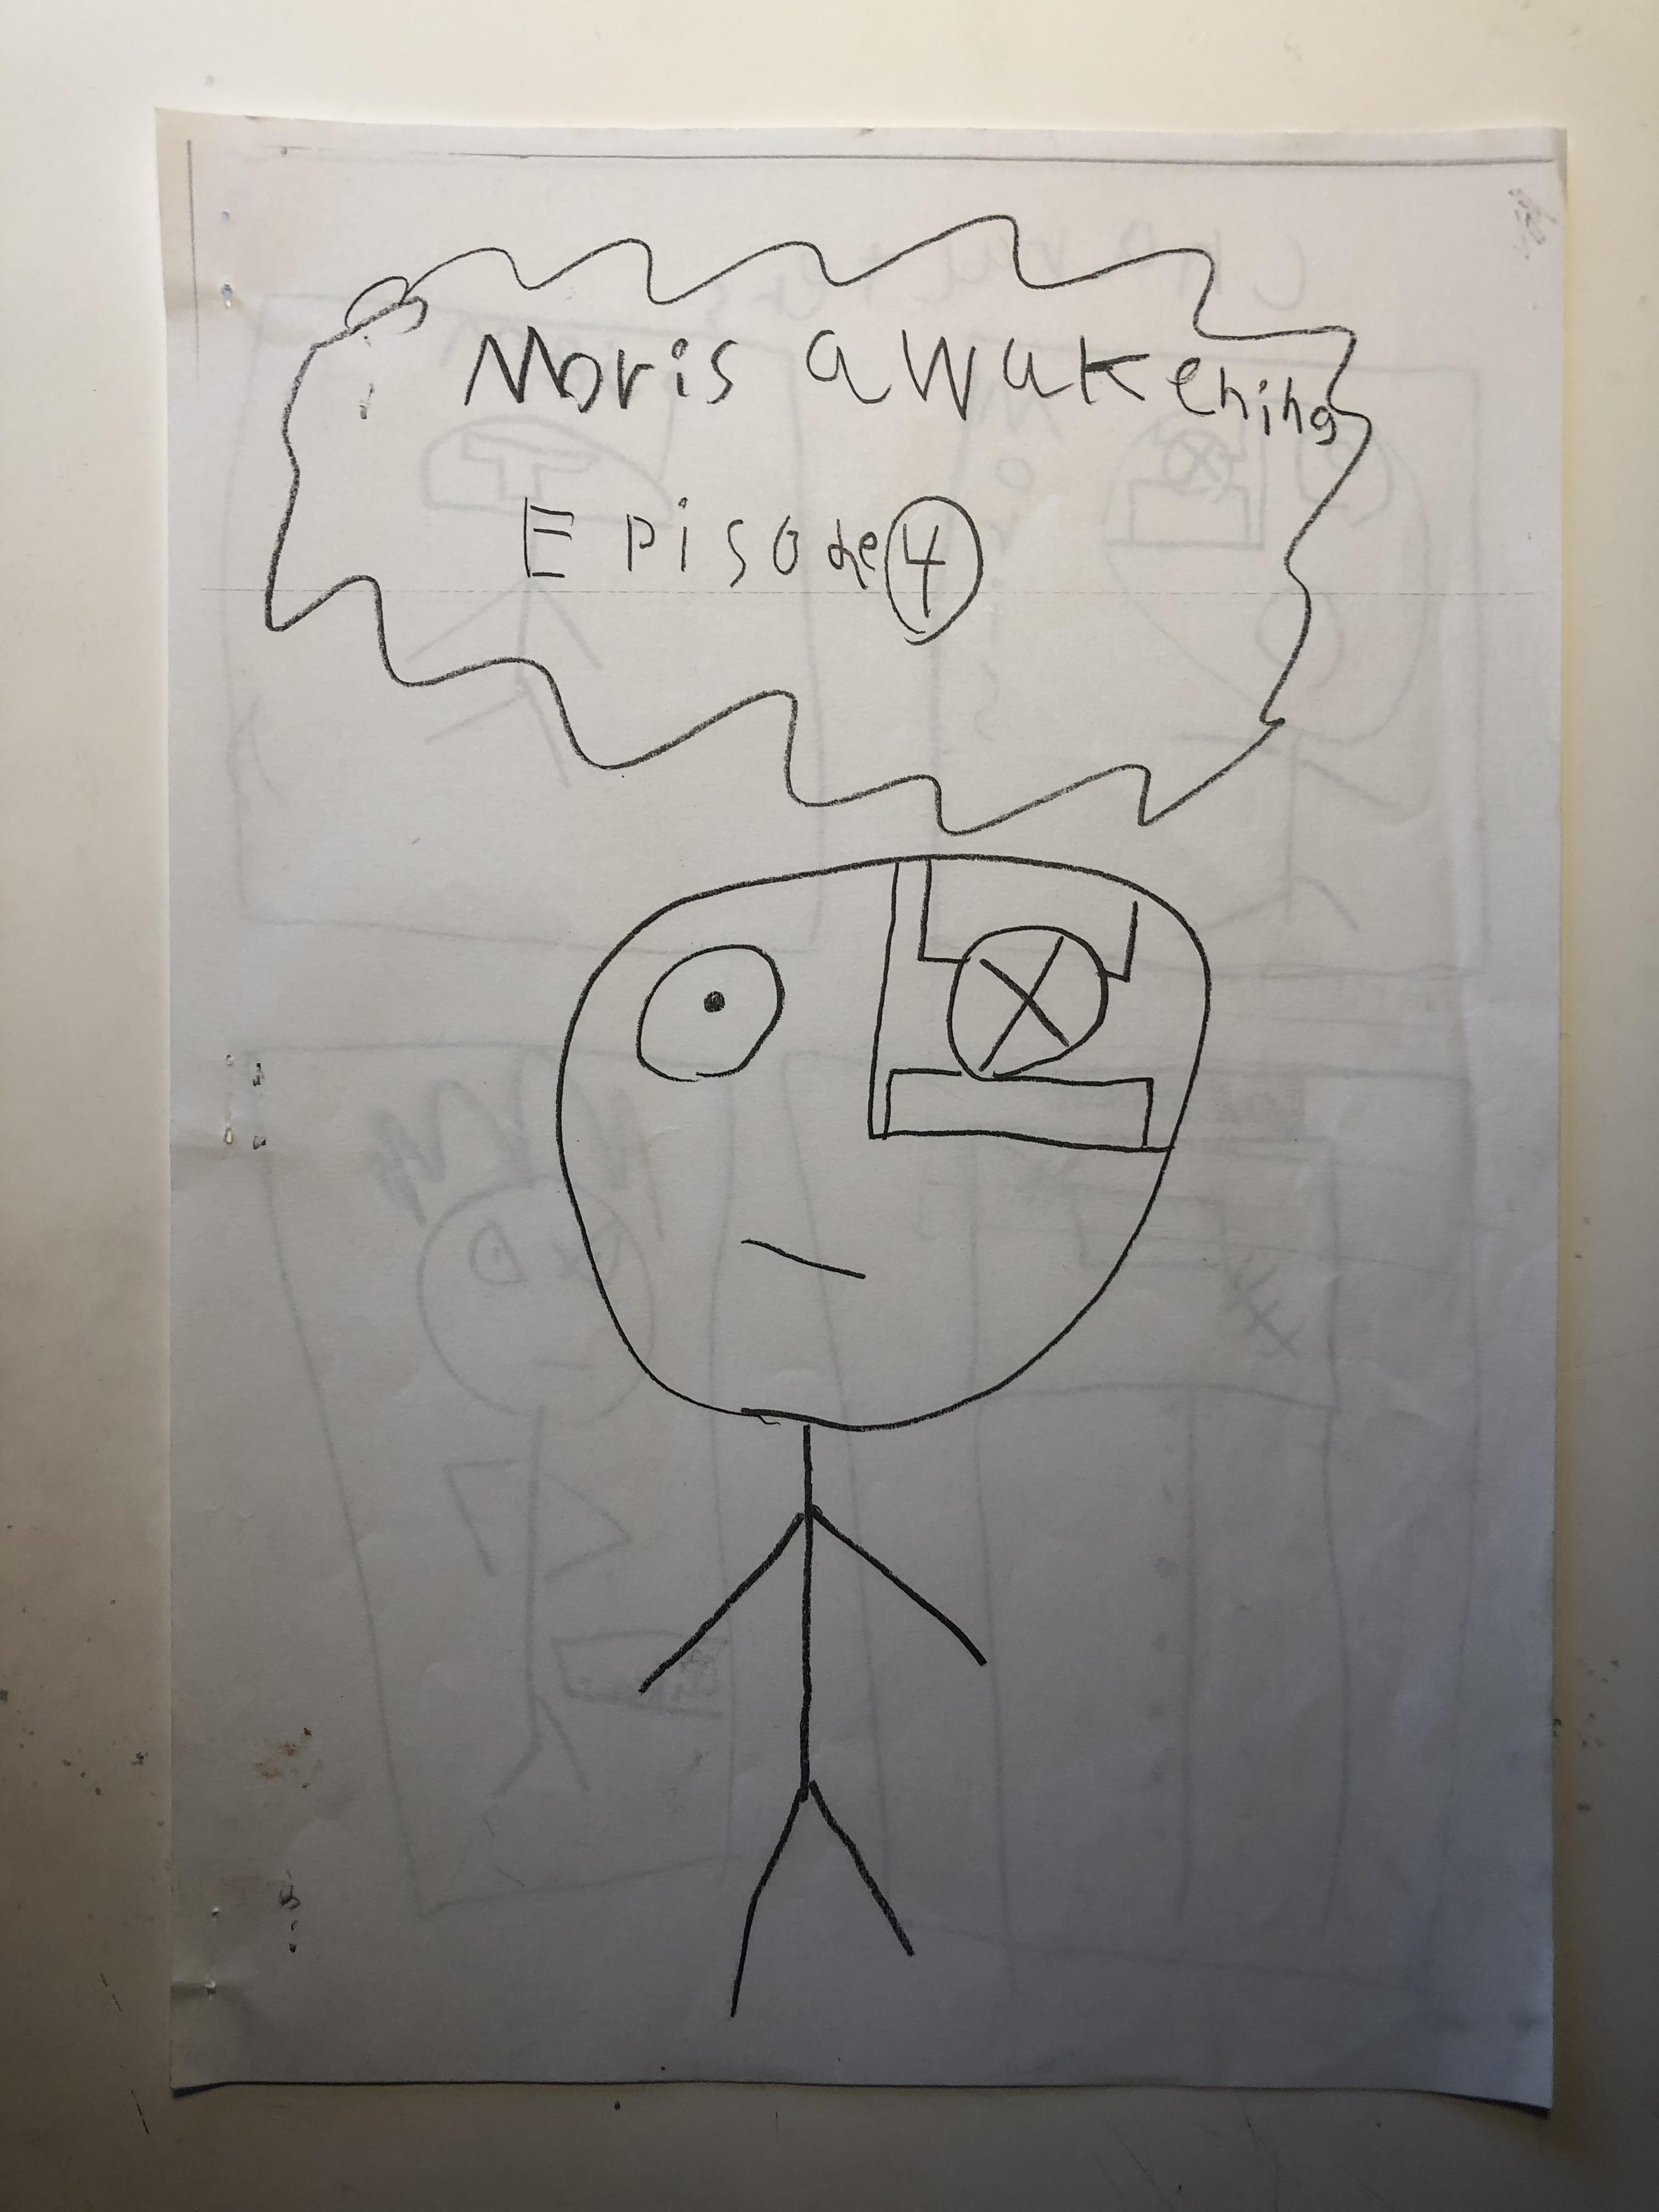 Moris awakening
Episode 4